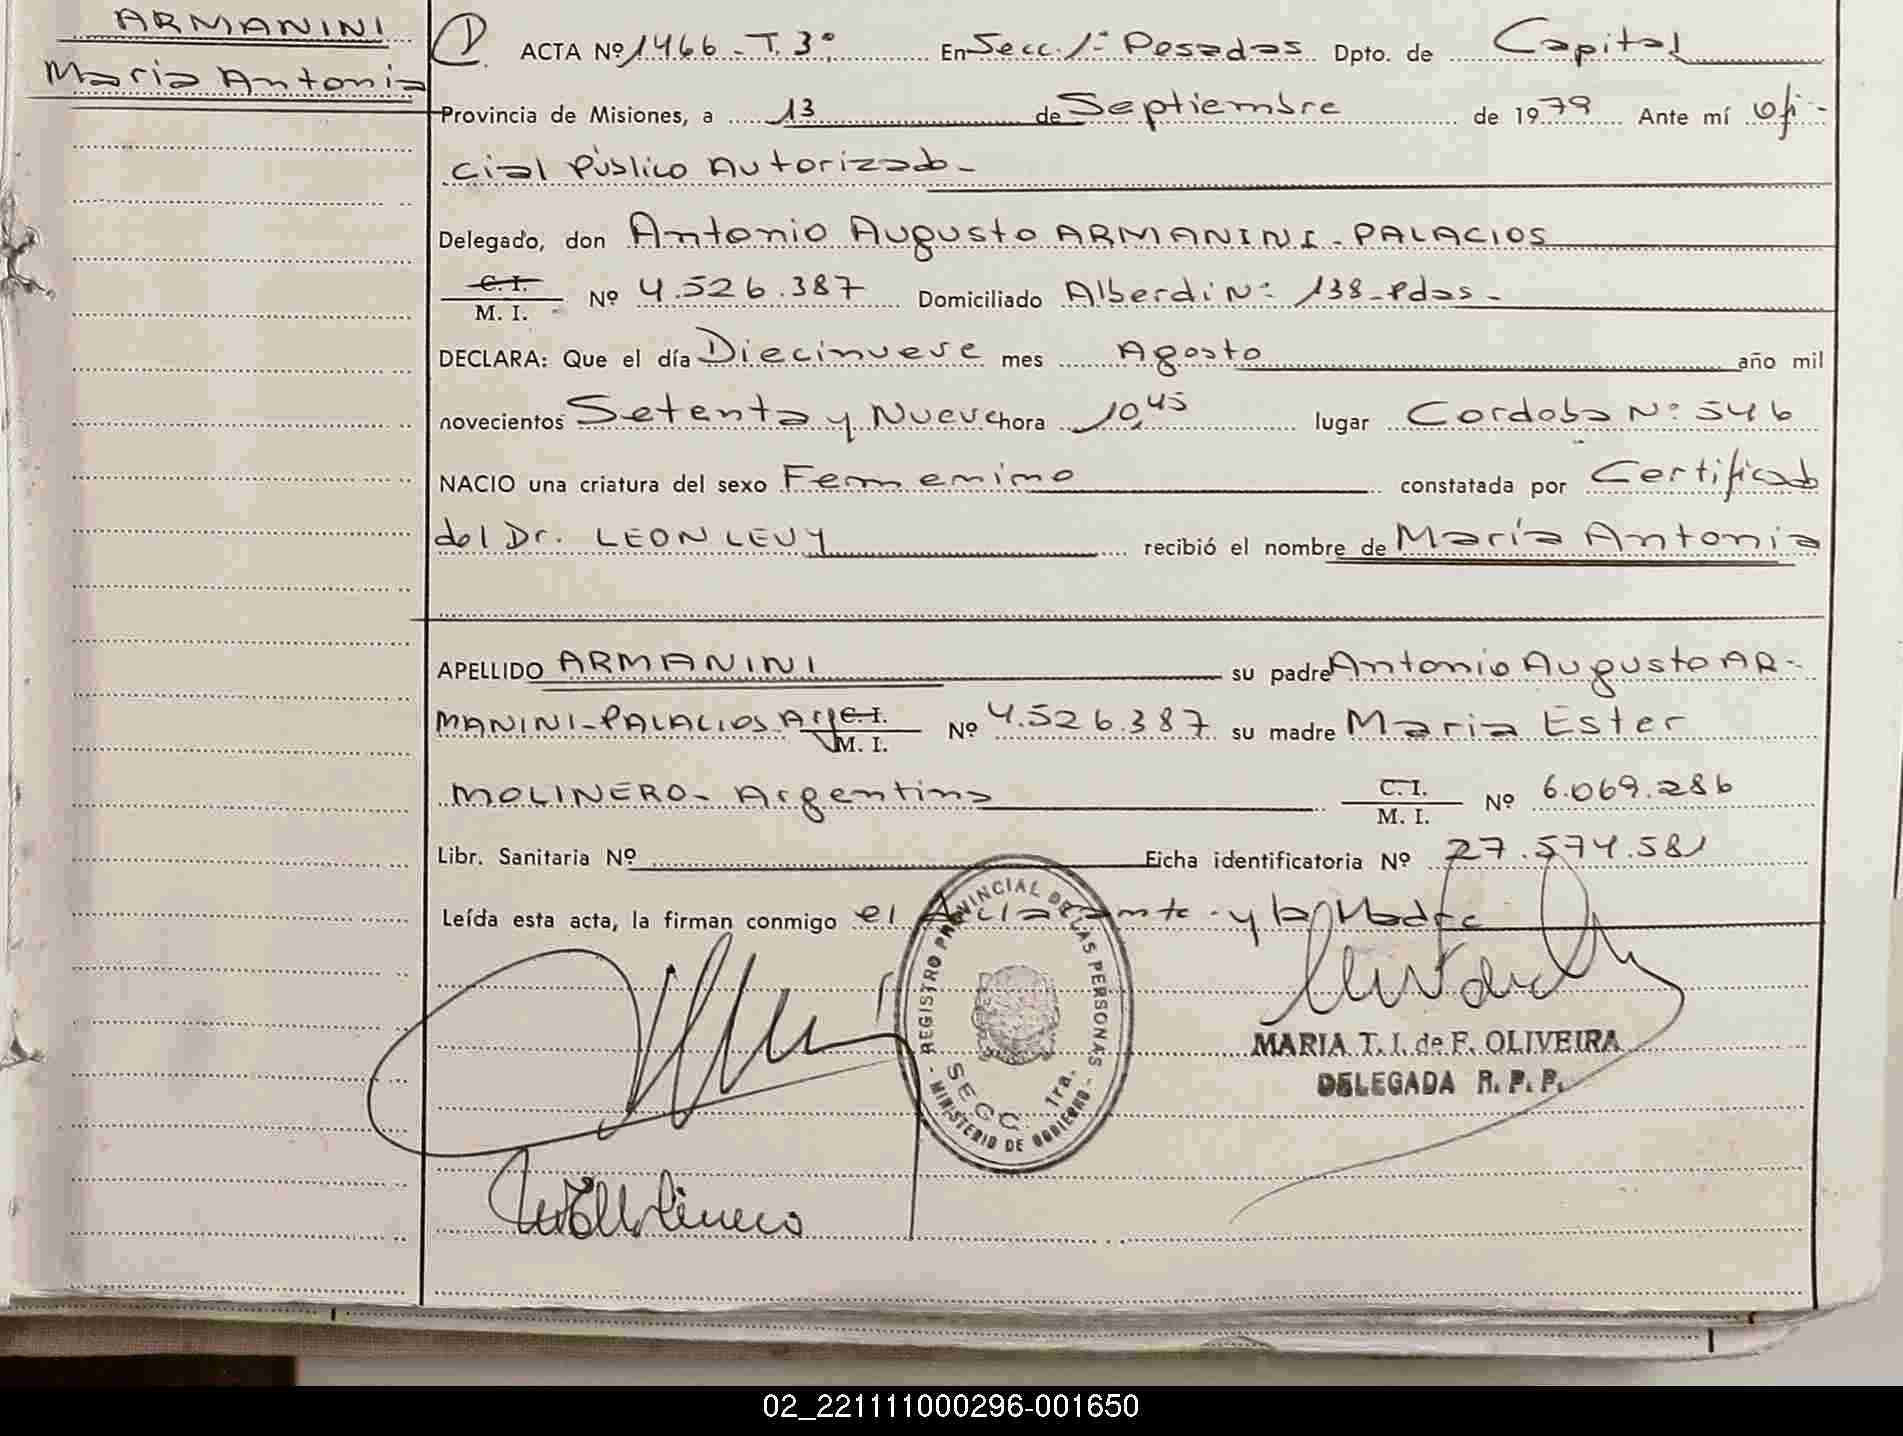 ARMANINI
Maria Antonia
1
ACTA Nº 1466 - T. 3º. En Secc. 1ª Posadas Dpto. de Capital
Provincia de Misiones, a 13 de Septiembre de 1979 Ante mí ofi-
cial Público Autorizado -
Delegado, don Antonio Augusto ARMANINI - PALACIOS
C. I.
M. I. Nº 4.526.387 Domiciliado Alberdi Nº 138 - Pdas -
DECLARA: Que el día Diecinueve mes Agosto año mil
novecientos Setenta y Nueve hora 10,45 lugar Cordoba Nº 546
NACIO una criatura del sexo Femenino constatada por Certificado
del Dr. LEON LEVY recibió el nombre de María Antonia
APELLIDO ARMANINI su padre Antonio Augusto AR-
MANINI - PALACIOS - Arg C. I.
M. I. Nº 4.526.387 su madre Maria Ester
MOLINERO - Argentina C. I.
M. I. Nº 6.069.286
Libr. Sanitaria Nº Ficha identificatoria Nº 27.574.581
Leída esta acta, la firman conmigo el declarante - y la Madre
REGISTRO PROVINCIAL DE LAS PERSONAS
SECC. 1ra.
- MINISTERIO DE GOBIERNO -
MARIA T. I. de F. OLIVEIRA
DELEGADA R. P. P.
02_221111000296-001650